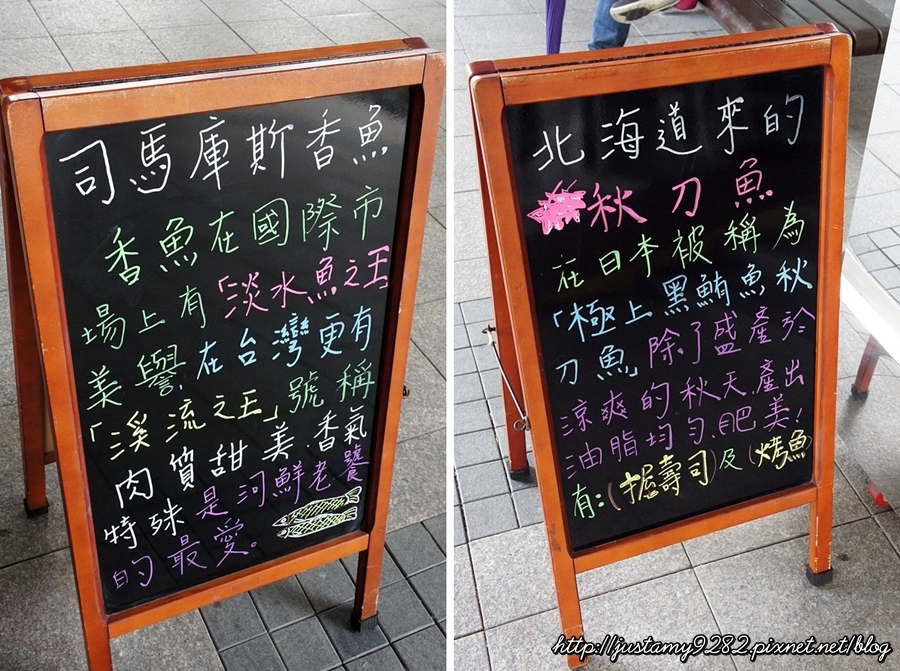 司馬庫斯香魚
香魚在國際市
場上有「淡水魚之王
美譽,在台灣更有
「溪流之王」號稱
肉質甜美.香氣
特殊是河鮮老饕
的最愛。
北海道來的
秋刀魚
在日本被稱為
「極上黑鮪魚秋
刀魚」除了盛產於
涼爽的秋天.產出
油脂均勻.肥美!
有:(握壽司)及(烤魚)
http://justamy9282.pixnet.net/blog